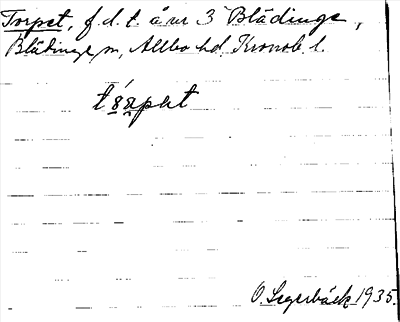 Torpet, f.d.t. å nr 3 Blädinge,
Blädinge sn, Allbo hd, Kronob. l.
tórpet
O. Segerbäck 1935.